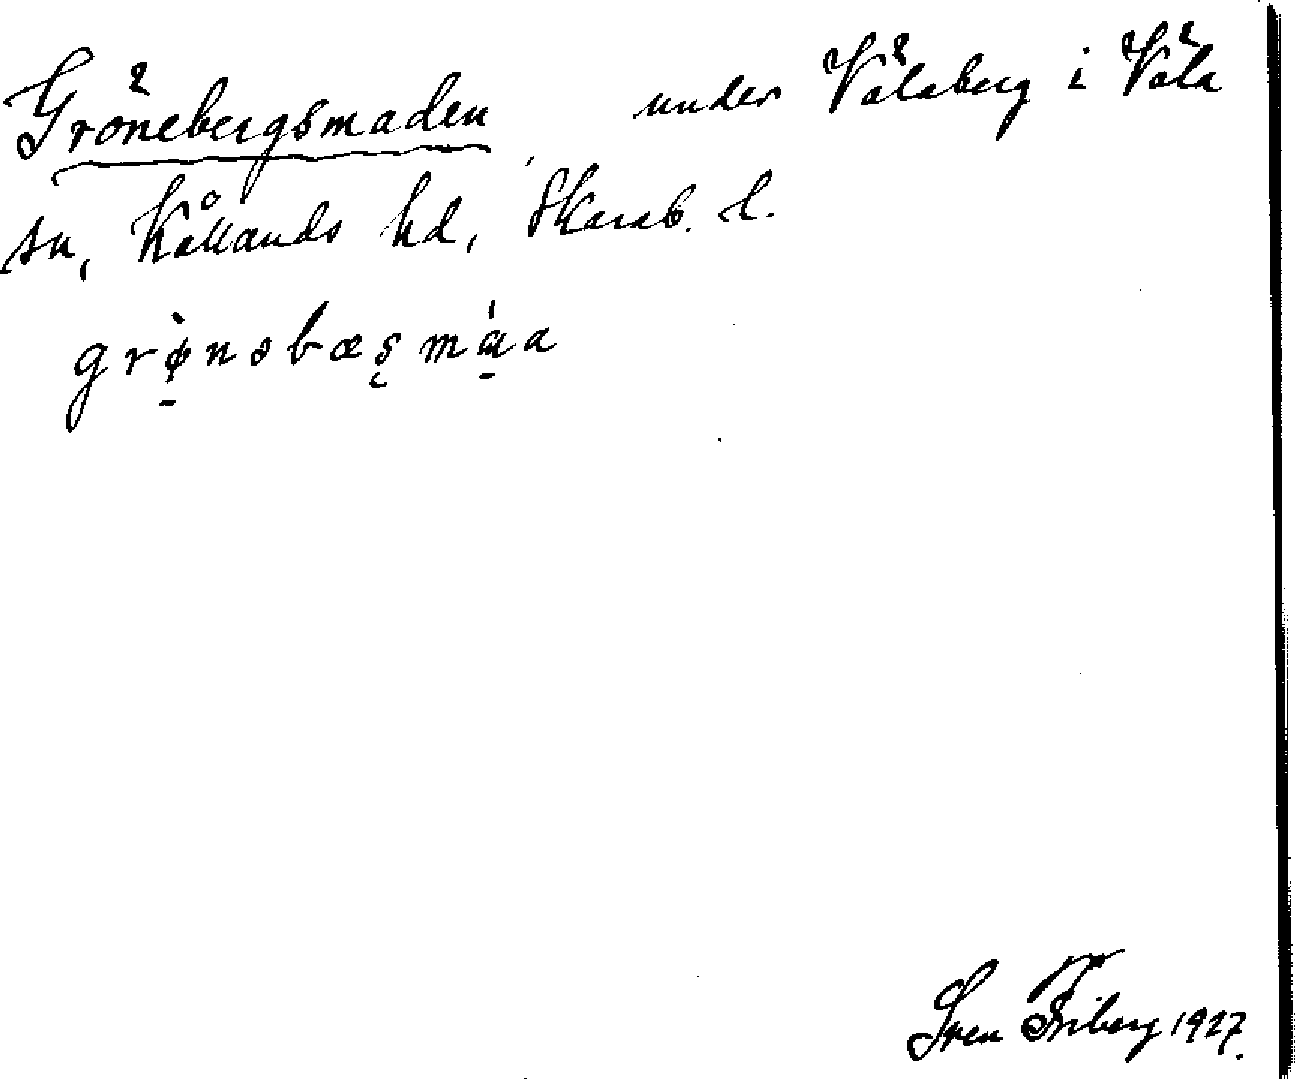 Grönebergsmaden under Välaberg i Väla
sn, Kållands hd, Skarab. l.
grø̀nəbæşmáa a
Sven Friberg 1927.